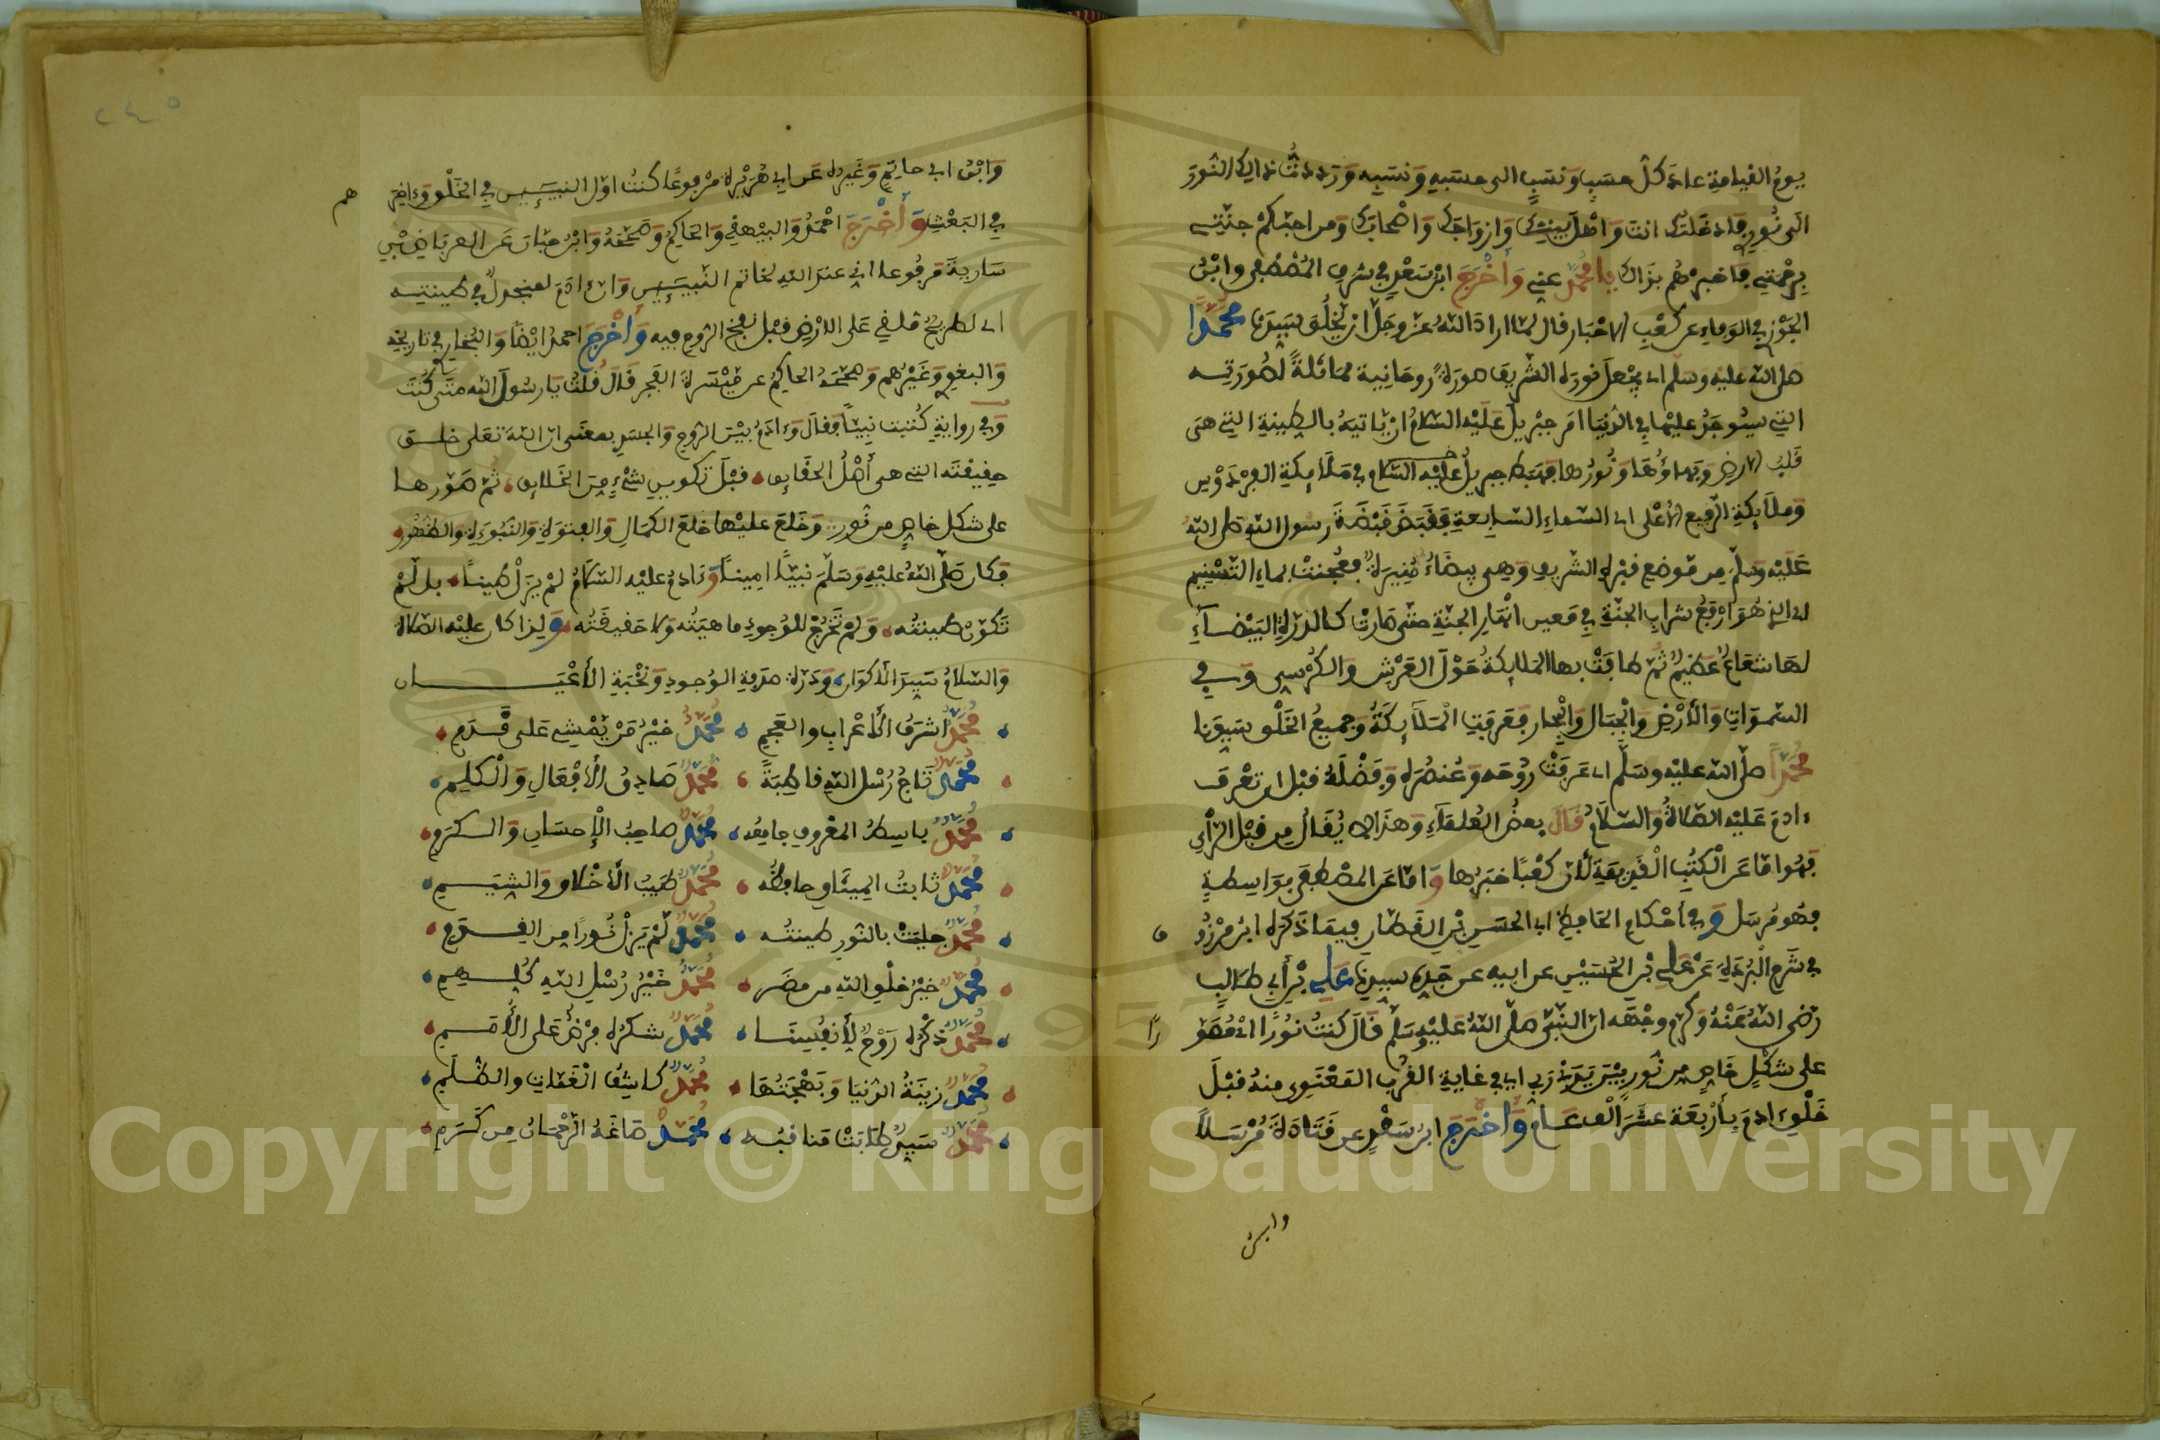 يوم القيامة عاد كل حسب ونسب الى حسبه ونسبه ورددتُّ ذالك النور
الى نُورِى فادخلتك انت وَاهل بيتك وَازواجك وَاصحابك ومن احبّكم جنّتي
برحمتي فاخبرهُم بذالك يا محُمّدُ عني وَأخْرَجَ ابن سَعْدٍ في شرف المُصْطفى وابْنُ
الجَوْزي في الوفاء عن كعْب الاحْبار قال لمّا اراد اللهُ عزّ وجلّ ان يّخْلُق سَيّدَنا مُحَمّدًا
صلى الله عليه وسلم اى يجْعل نورَه الشّريف صورة رُوحانية مماثلةً لصُورَته
التى سيُوجَدُ عليها في الدُّنيا امر جبْريل عَلَيْه السّلامُ ان يّاتيهُ بالطينة التي هى
قَلبُ الارض وبهاؤُها وَنُورُها فهبط جبريلُ عليْه السّلام في مَلَايكة الفِرْدَوْس
وَملَايكةِ الرّفيع الأَعْلى اى السّماء السّابعةِ فَقَبَضَ قَبْضَةَ رسول الله صلّى اللهُ
عَلَيْه وَسَلّم مِن مّوْضِع قبْره الشّريف وَهى بيضَاءُ مُنِيرة فعُجنتْ بماء التّسْنيم
الذى هُوَ ارْفعُ شراب الجنّة في مَعين انْهَار الجنّة حتّى صارتْ كالدّرّة البَيْضَاءِ
لهَا شعَاعٌ عَظيمٌ ثُمّ طافَتْ بها الملايكةُ حَوْلَ العَرْش وَالكُرْسى وَفي
السّموَاتِ وَالأرْضِ وَالجبَال وَالبحار فعَرفت المَلَايكةُ وَجميعُ الخَلْق سيدنا
مُحمّدًا صلّى الله عليْه وسَلّم اى عَرفَتْ رُوحَه وَعُنصُرَه وَفضْلَهُ قبْل ان تعْرف
ءادمَ عَليْه الصّلاةُ وَالسّلَامُ قَالَ بعضُ العُلمَاءِ وَهذَا لا يُقَالُ مِن قبْل الرّأْي
فهُو امّا عَن الْكتُبِ الْقديمة لأنّ كعْبًا حَبْرُها وَامّا عَن المصْطفَى بوَاسِطةٍ
فهُو مُرسَل وَفي أحْكامِ الحَافِظِ ابى الحسَن بْن القطّان فيمَا ذَكَرَه ابنُ مرْزُوق
في شَرْح البُرْدَة عَنْ عَلي بْن الحُسَيْن عن ابيه عن جَدّه سيدنا علي بْن أَبي طَالب
رَضى اللهُ عَنْهُ وَكرّم وجْهَه انّ النّبىّ صَلّى اللهُ عَليْه وَسَلّم قَالَ كنتُ نُورًا اىْ مُصَوَّ
رًا
على شكْلٍ خاصٍ مِن نُّورٍ بيْنَ يَدَىْ رَبى اى في غايةِ القُرْب المعْنَوي منهُ قبْلَ
خَلْق ءادمَ بأَرْبعَة عشَرَ ألْف عَام وَأخْرَجَ ابن سَعْدٍ عن قَتَادَةَ مُرْسَلًا
وابن
٢٤٥
وَابْنُ ابى حاتم وَغَيْرُه عَن ابي هُرَيْرة مَرْفوعًا كنتُ اوّل النبيـين في الخَلْق وَءاخِرَ
هم
في البَعْث وَأَخْرَجَ احْمدُ وَالبيْهقي وَالحاكِمُ وَصَحّحهُ وَابْنُ حبّان عَن العرْبَاض بْن
سَاريةَ مَرفُوعا انى عندَ الله لخَاتم النّبيـين وَان ءادمَ لمنجدلٌ في طينتـه
اى لطريحٌ مُلقى عَلى الارْض قبْل نفخ الرّوح فيه وَأَخْرَجَ احمدُ ايْضًا وَالبُخاري في تاريخه
وَالبغوي وَغَيْرُهُم وَصَحّحَهُ الحاكِمُ عن مَيْسَرةَ الفَجر قَالَ قُلتُ يَا رسُول الله متى كُنتَ
وَفي روايةٍ كُتبت نبيـًا فقالَ وَءادمُ بيْنَ الرّوح وَالجسَد بمعْنى انّ اللهَ تعَلى خلـق
حقيقتَه التي هى أَصْلُ الحَقَايق قبْلَ تكوين شيْءٍ مِنَ الخَلايق ثُمّ صَوّرهـا
على شكل خاصٍ من نُّورٍ وَخَلعَ عليْها خلعَ الكمَالِ وَالفتوّة وَالنّبوءة وَالظّهُور
فكان صَلّى اللهُ عليْه وَسَلّمَ نبيـًا امينـًا وءادمُ عليْه السّلامُ لمْ يزَلْ طينـًا بل لمْ
تَكوّنْ طينتُه وَلمْ تَخْرُجْ للوُجودِ ماهيَتُه وَلا حَقيقَتُه وَلذا كان عليْه الصّلاة
وَالسّلامُ سَيّدَ الأكوَان وَدُرّة صَدَفةِ الوُجودِ وَنُخْبَةِ الأَعْيَـــان
مُحَمّدٌ اشرَفُ الأَعْرابِ والعَجَمِ مُحَمّدٌ خيْرُ مَنْ يّمْشِى عَلى قَدَم
مُحَمّدٌ تَاجُ رُسْل اللهِ قاطبَةً مُحَمّدٌ صَادِقُ الأَفْعَالِ وَالْكلِمِ
مُحَمّدٌ باسِطُ المعْرُوفِ جامِعُه مُحَمّدٌ صاحِبُ الْإحسَانِ وَالكـرَم
مُحَمّدٌ ثَابتُ المِيثَاقِ حافِظُه مُحَمّدٌ طَيّبُ الأَخْلاقِ وَالشّيَـمِ
مُحَمّدٌ جبلتْ بالنّورِ طِينتُـه مُحَمّدٌ لمْ يَزلْ نُورًا مِن القِـدَمِ
مُحَمّدٌ خيْرُ خلْقِ اللهِ مِن مضَرٍ مُحَمّدٌ خَيْرُ رُسْلِ اللهِ كُلِـهِمِ
مُحَمّدٌ ذكْرُه رَوْحٌ لِأَنفُسِنَـا مُحَمّدٌ شكرُه فرْضٌ عَلى الأُمَـمِ
مُحَمّدٌ زينَةُ الدّنيَا وَبَهْجَتُهَا مُحَمّدٌ كاشِفُ الغُمّاتِ والظّلَمِ
مُحَمّدٌ سَيّدٌ طَابَتْ مَناقبُـه مُحَمّدٌ صَاغَهُ الرّحْمَانُ مِن كَرَمِ
Copyright © King Saud University